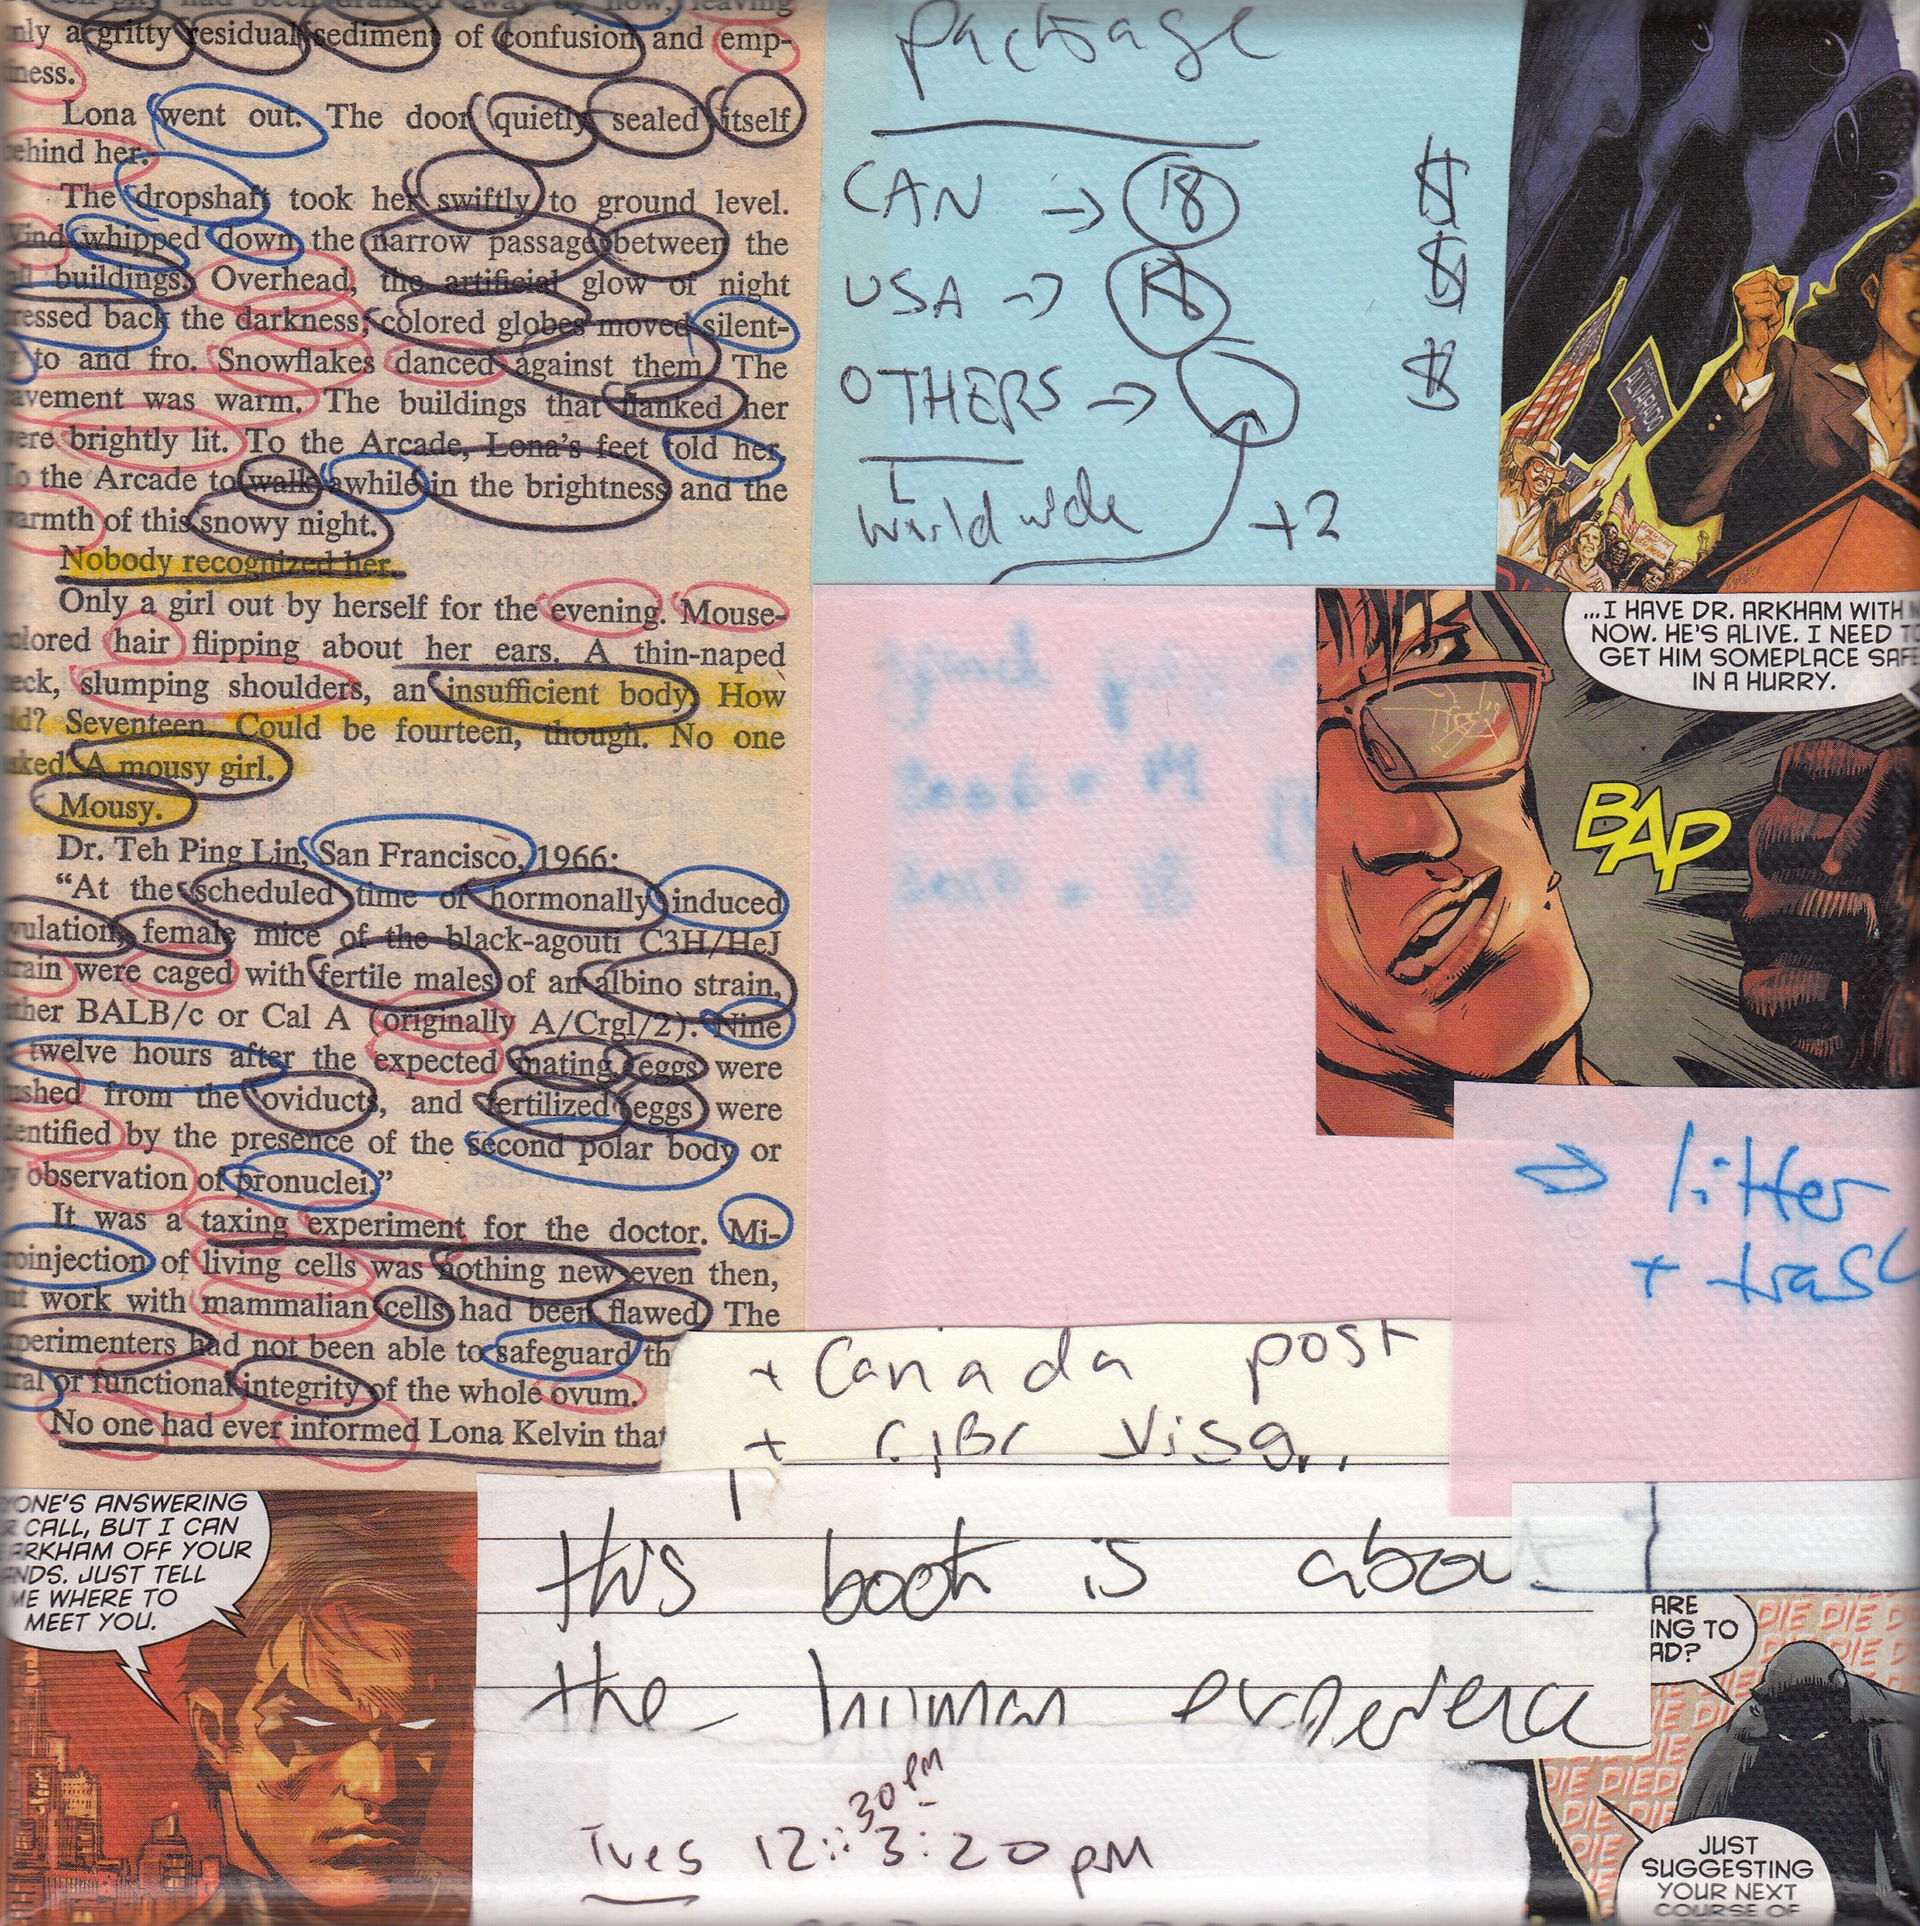 nly a gritty residual sediment of confusion and emp-
iness.
Lona went out. The door quietly sealed itself
ehind her.
The dropshaft took her swiftly to ground level.
Wind whipped down the narrow passage between the
all buildings. Overhead, the artificial glow of night
ressed back the darkness, colored globes moved silent-
to and fro. Snowflakes danced against them. The
avement was warm. The buildings that flanked her
ere brightly lit. To the Arcade, Lona's feet told her.
To the Arcade to walk awhile in the brightness and the
armth of this snowy night.
Nobody recognized her.
Only a girl out by herself for the evening. Mouse-
olored hair flipping about her ears. A thin-naped
neck, slumping shoulders, an insufficient body. How
ld? Seventeen. Could be fourteen, though. No one
sked. A mousy girl.
Mousy.
Dr. Teh Ping Lin, San Francisco, 1966:
“At the scheduled time of hormonally induced
vulation, female mice of the black-agouti C3H/HeJ
rain were caged with fertile males of an albino strain,
ther BALB/c or Cal A (originally A/Crgl/2). Nine
twelve hours after the expected mating, eggs were
ushed from the oviducts, and fertilized eggs were
entified by the presence of the second polar body or
y observation of pronuclei.”
It was a taxing experiment for the doctor. Mi-
roinjection of living cells was nothing new even then,
ut work with mammalian cells had been flawed. The
perimenters had not been able to safeguard th
ural or functional integrity of the whole ovum.
No one had ever informed Lona Kelvin that
package
CAN → 18 $
USA → $
OTHERS → $
worldwide +2
ALVARADO
...I HAVE DR. ARKHAM WITH M
NOW. HE'S ALIVE. I NEED TO
GET HIM SOMEPLACE SAFE
IN A HURRY.
BAP
⇒ litter
+ trash
+ Canada post
+ CIBC Visa
this book is abou
the human experienc
Tues 12:30 pm 3:20 pm
YONE'S ANSWERING
R CALL, BUT I CAN
ARKHAM OFF YOUR
ANDS. JUST TELL
ME WHERE TO
MEET YOU.
ARE
ING TO
AD?
DIE DIE D
DIE DIE
DIE DIED
JUST
SUGGESTING
YOUR NEXT
COURSE OF